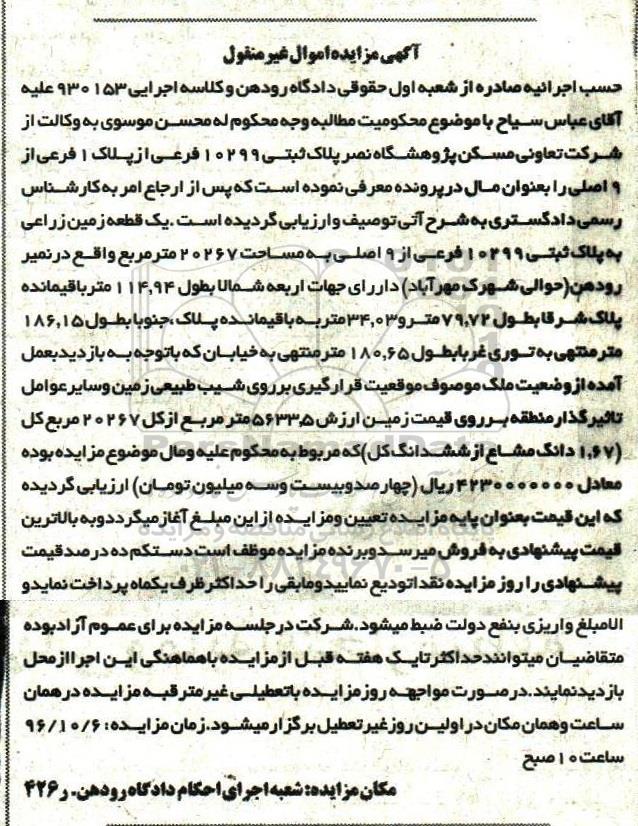 آگهی مزایده اموال غیر منقول
حسب اجرائیه صادره از شعبه اول حقوقی دادگاه رودهن و کلاسه اجرایی ۹۳۰۱۵۳ علیه
آقای عباس سیاح با موضوع محکومیت مطالبه وجه محکوم له محسن موسوی به وکالت از
شرکت تعاونی مسکن پژوهشگاه نصر پلاک ثبتی ۱۰۲۹۹ فرعی از پلاک ۱ فرعی از
۹ اصلی را بعنوان مال در پرونده معرفی نموده است که پس از ارجاع امر به کارشناس
رسمی دادگستری به شرح آتی توصیف وارزیابی گردیده است .یک قطعه زمین زراعی
به پلاک ثبتی ۱۰۲۹۹ فرعی از ۹ اصلی به مساحت ۲۰۲۶۷ مترمربع واقع در نمیر
رودهن(حوالی شهرک مهرآباد) داررای جهات اربعه شمالا بطول ۱۱۴,۹۴ متر باقیمانده
پلاک شرقا بطول ۷۹,۷۲ متر و ۳۴,۰۳ متر به باقیمانده پلاک ،جنوبا بطول ۱۸۶,۱۵
متر منتهی به توری غربا بطول ۱۸۰,۶۵ متر منتهی به خیابان که باتوجه به بازدید بعمل
آمده از وضعیت ملک موصوف موقعیت قرارگیری بر روی شیب طبیعی زمین وسایر عوامل
تاثیر گذار منطقه بر روی قیمت زمین ارزش ۵۶۳۳,۵ متر مربع از کل ۲۰۲۶۷ مربع کل
(۱,۶۷ دانگ مشاع از ششدانگ کل)که مربوط به محکوم علیه ومال موضوع مزایده بوده
معادل ۴۲۳۰۰۰۰۰۰۰ ریال (چهارصدوبیست وسه میلیون تومان) ارزیابی گردیده
که این قیمت بعنوان پایه مزایده تعیین ومزایده از این مبلغ آغاز میگردد وبه بالاترین
قیمت پیشنهادی به فروش میرسد وبرنده مزایده موظف است دستکم ده در صد قیمت
پیشنهادی را روز مزایده نقدا تودیع نمایید ومابقی را حداکثر ظرف یکماه پرداخت نماید و
الا مبلغ واریزی بنفع دولت ضبط میشود.شرکت در جلسه مزایده برای عموم آزاد بوده
متقاضیان میتوانند حداکثر تا یک هفته قبل از مزایده با هماهنگی این اجرا از محل
بازدید نمایند.در صورت مواجهه روز مزایده با تعطیلی غیر مترقبه مزایده در همان
ساعت وهمان مکان در اولین روز غیر تعطیل برگزار میشود.زمان مزایده: ۹۶/۱۰/۶
ساعت ۱۰ صبح
مکان مزایده: شعبه اجرای احکام دادگاه رودهن. ر ۴۲۶
ParsNamadData
پایگاه اطلاع رسانی مناقصه و مزایده
۰۲۱-۸۸۳۴۹۶۷۰-۵